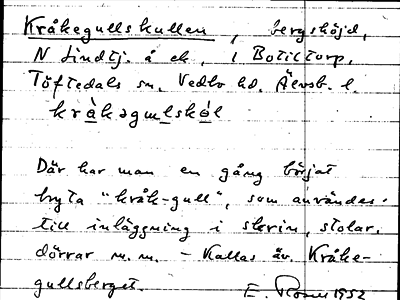 Kråkegullskullen, bergshöjd,
N Lindtj. å ek., i Botiltorp,
Töftedals sn, Vedbo hd. Älvsb. l.
kràkəgʊlskəl
Där har man en gång börjat
bryta "kråk-gull", som användes
till inläggning i skrin, stolar,
dörrar m.m. - Kallas äv. Kråke-
gullsberget.
E. Rosen 1952